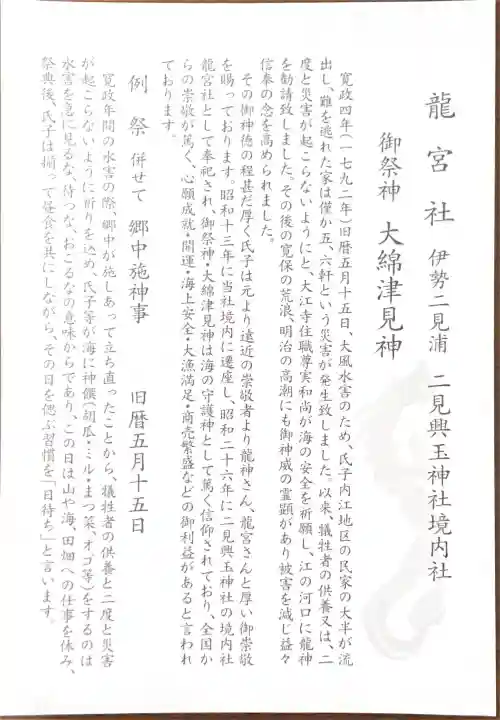 龍宮社 伊勢二見浦 二見興玉神社境内社
御祭神 大綿津見神
寛政四年(一七九二年)旧暦五月十五日、大風水害のため、氏子内江地区の民家の大半が流
出し、難を逃れた家は僅か五、六軒という災害が発生致しました。以来、犠牲者の供養又は、二
度と災害が起こらないようにと、大江寺住職尊実和尚が海の安全を祈願し、江の河口に龍神
を勧請致しました。その後の寛保の荒浪、明治の高潮にも御神威の霊顕があり被害を減じ益々
信奉の念を高められました。
その御神徳の程甚だ厚く氏子は元より遠近の崇敬者より龍神さん、龍宮さんと厚い御崇敬
を賜っております。昭和十三年に当社境内に遷座し、昭和二十六年に二見興玉神社の境内社
龍宮社として奉祀され、御祭神・大綿津見神は海の守護神として篤く信仰されており、全国か
らの崇敬が篤く、心願成就・開運・海上安全・大漁満足・商売繁盛などの御利益があると言われ
ております。
例祭 併せて 郷中施神事 旧暦五月十五日
寛政年間の水害の際、郷中が施しあって立ち直ったことから、犠牲者の供養と二度と災害
が起こらないように祈りを込め、氏子等が海に神饌(胡瓜・ミル・まつ菜、オゴ等)をするのは
水害を急に見るな、待つな、おこるなの意味からであり、この日は山や海、田畑への仕事を休み、
祭典後、氏子は揃って昼食を共にしながら、その日を偲ぶ習慣を「日待ち」と言います。